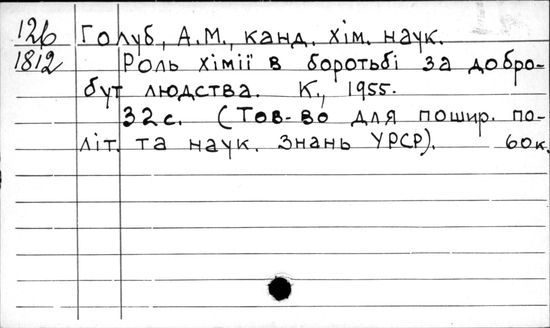 126 Голуб, А.М., канд. хім. наук.
1812 Роль хімії в боротьбі за добро-
бут людства. К., 1955.
32с. (Тов-во для пошир. по-
літ. та наук. Знань УРСР). 60к.